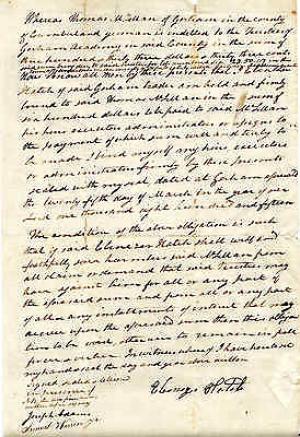 Whereas Thomas McLellan of Gorham in the county
of Cumberland yeoman is indebted to the Trustees of
Gorham Academy in said County in the sum of
three hundred thirty three dollars & thirty three cents
Know all men by these presents that I Ebenezer
Hatch of said Gorham trader am held and firmly
bound to said Thomas McLellan in the sum of
six hundred dollars to be paid to said McLellan
his heirs executors administrators or assigns to
the payment of which sum well and truly to
be made I bind myself my heirs executors
or administrators firmly by these presents
sealed with my seal dated at Gorham aforesaid
the twenty fifth day of March in the year of our
Lord one thousand eight hundred and fifteen
The condition of the above obligation is such
that if said Ebenezer Hatch shall well and
faithfully save harmless said McLellan from
all claim or demand that said Trustees may
have against him for all or any part of
the aforesaid sum and from all or any part
of all or any installments of interest that may
accrue upon the aforesaid sum then this obligation
to be void, otherwise to remain in full
force & virtue. In witness whereof I have hereunto set
my hand & seal the day and year above written
Signed sealed & delivered
in presence of
Joseph Adams
Ebenezer Hatch